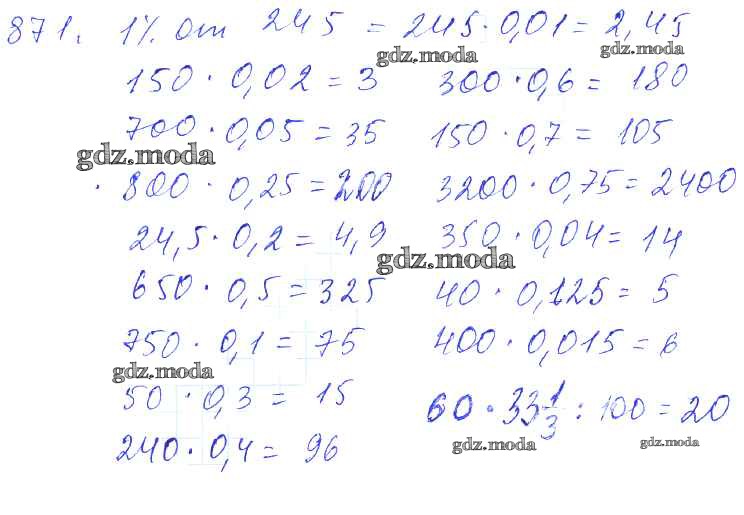 871. 1% от 245 = 245 · 0,01 = 2,45
gdz.moda gdz.moda
150 · 0,02 = 3 300 · 0,6 = 180
700 · 0,05 = 35 150 · 0,7 = 105
gdz.moda
800 · 0,25 = 200 3200 · 0,75 = 2400
24,5 · 0,2 = 4,9 350 · 0,04 = 14
gdz.moda
650 · 0,5 = 325 40 · 0,125 = 5
750 · 0,1 = 75 400 · 0,015 = 6
gdz.moda
50 · 0,3 = 15 60 · 33 1/3 : 100 = 20
gdz.moda gdz.moda
240 · 0,4 = 96